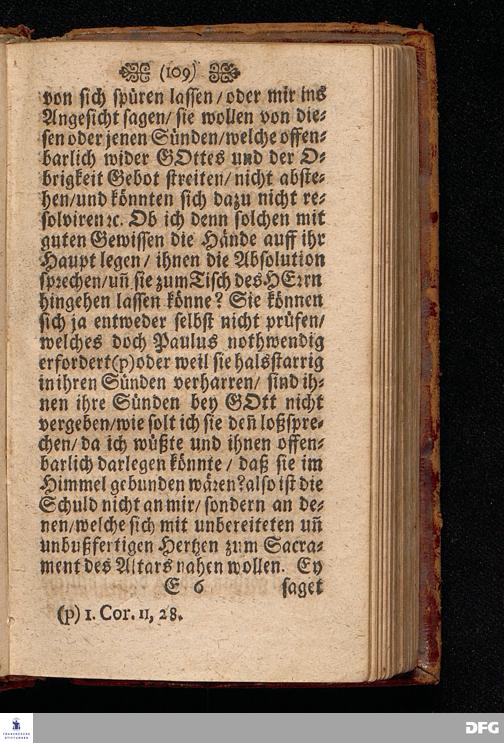 (109)
von sich spüren lassen/oder mir ins
Angesicht sagen/ sie wollen von die-
sen oder jenen Sünden/welche offen-
barlich wider GOttes und der O-
brigkeit Gebot streiten/nicht abste-
hen/und könnten sich dazu nicht re-
solviren ꝛc. Ob ich denn solchen mit
guten Gewissen die Hände auff ihr
Haupt legen/ ihnen die Absolution
sprechen/uñ sie zum Tisch des HErrn
hingehen lassen könne? Sie können
sich ja entweder selbst nicht prüfen/
welches doch Paulus nothwendig
erfordert(p)oder weil sie halsstarrig
in ihren Sünden verharren/ sind ih-
nen ihre Sünden bey GOtt nicht
vergeben/wie solt ich sie deñ loßspre-
chen/da ich wüßte und ihnen offen-
barlich darlegen könnte/ daß sie im
Himmel gebunden wären?also ist die
Schuld nicht an mir/ sondern an de-
nen/welche sich mit unbereiteten uñ
unbußfertigen Hertzen zum Sacra-
ment des Altars nahen wollen. Ey
E 6 saget
(p) 1. Cor. 11, 28.
FRANCKESCHE
STIFTUNGEN
DFG